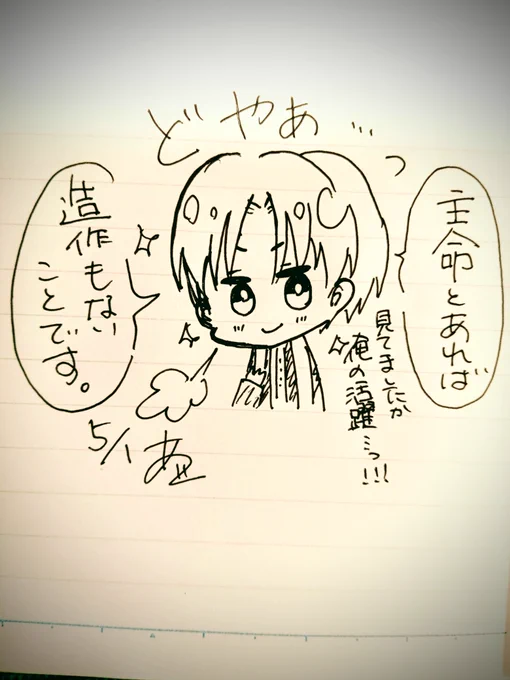 どやあ…っ
主命とあれば
造作もない
ことです。
見てましたか
俺の活躍…っ!!!
5/1